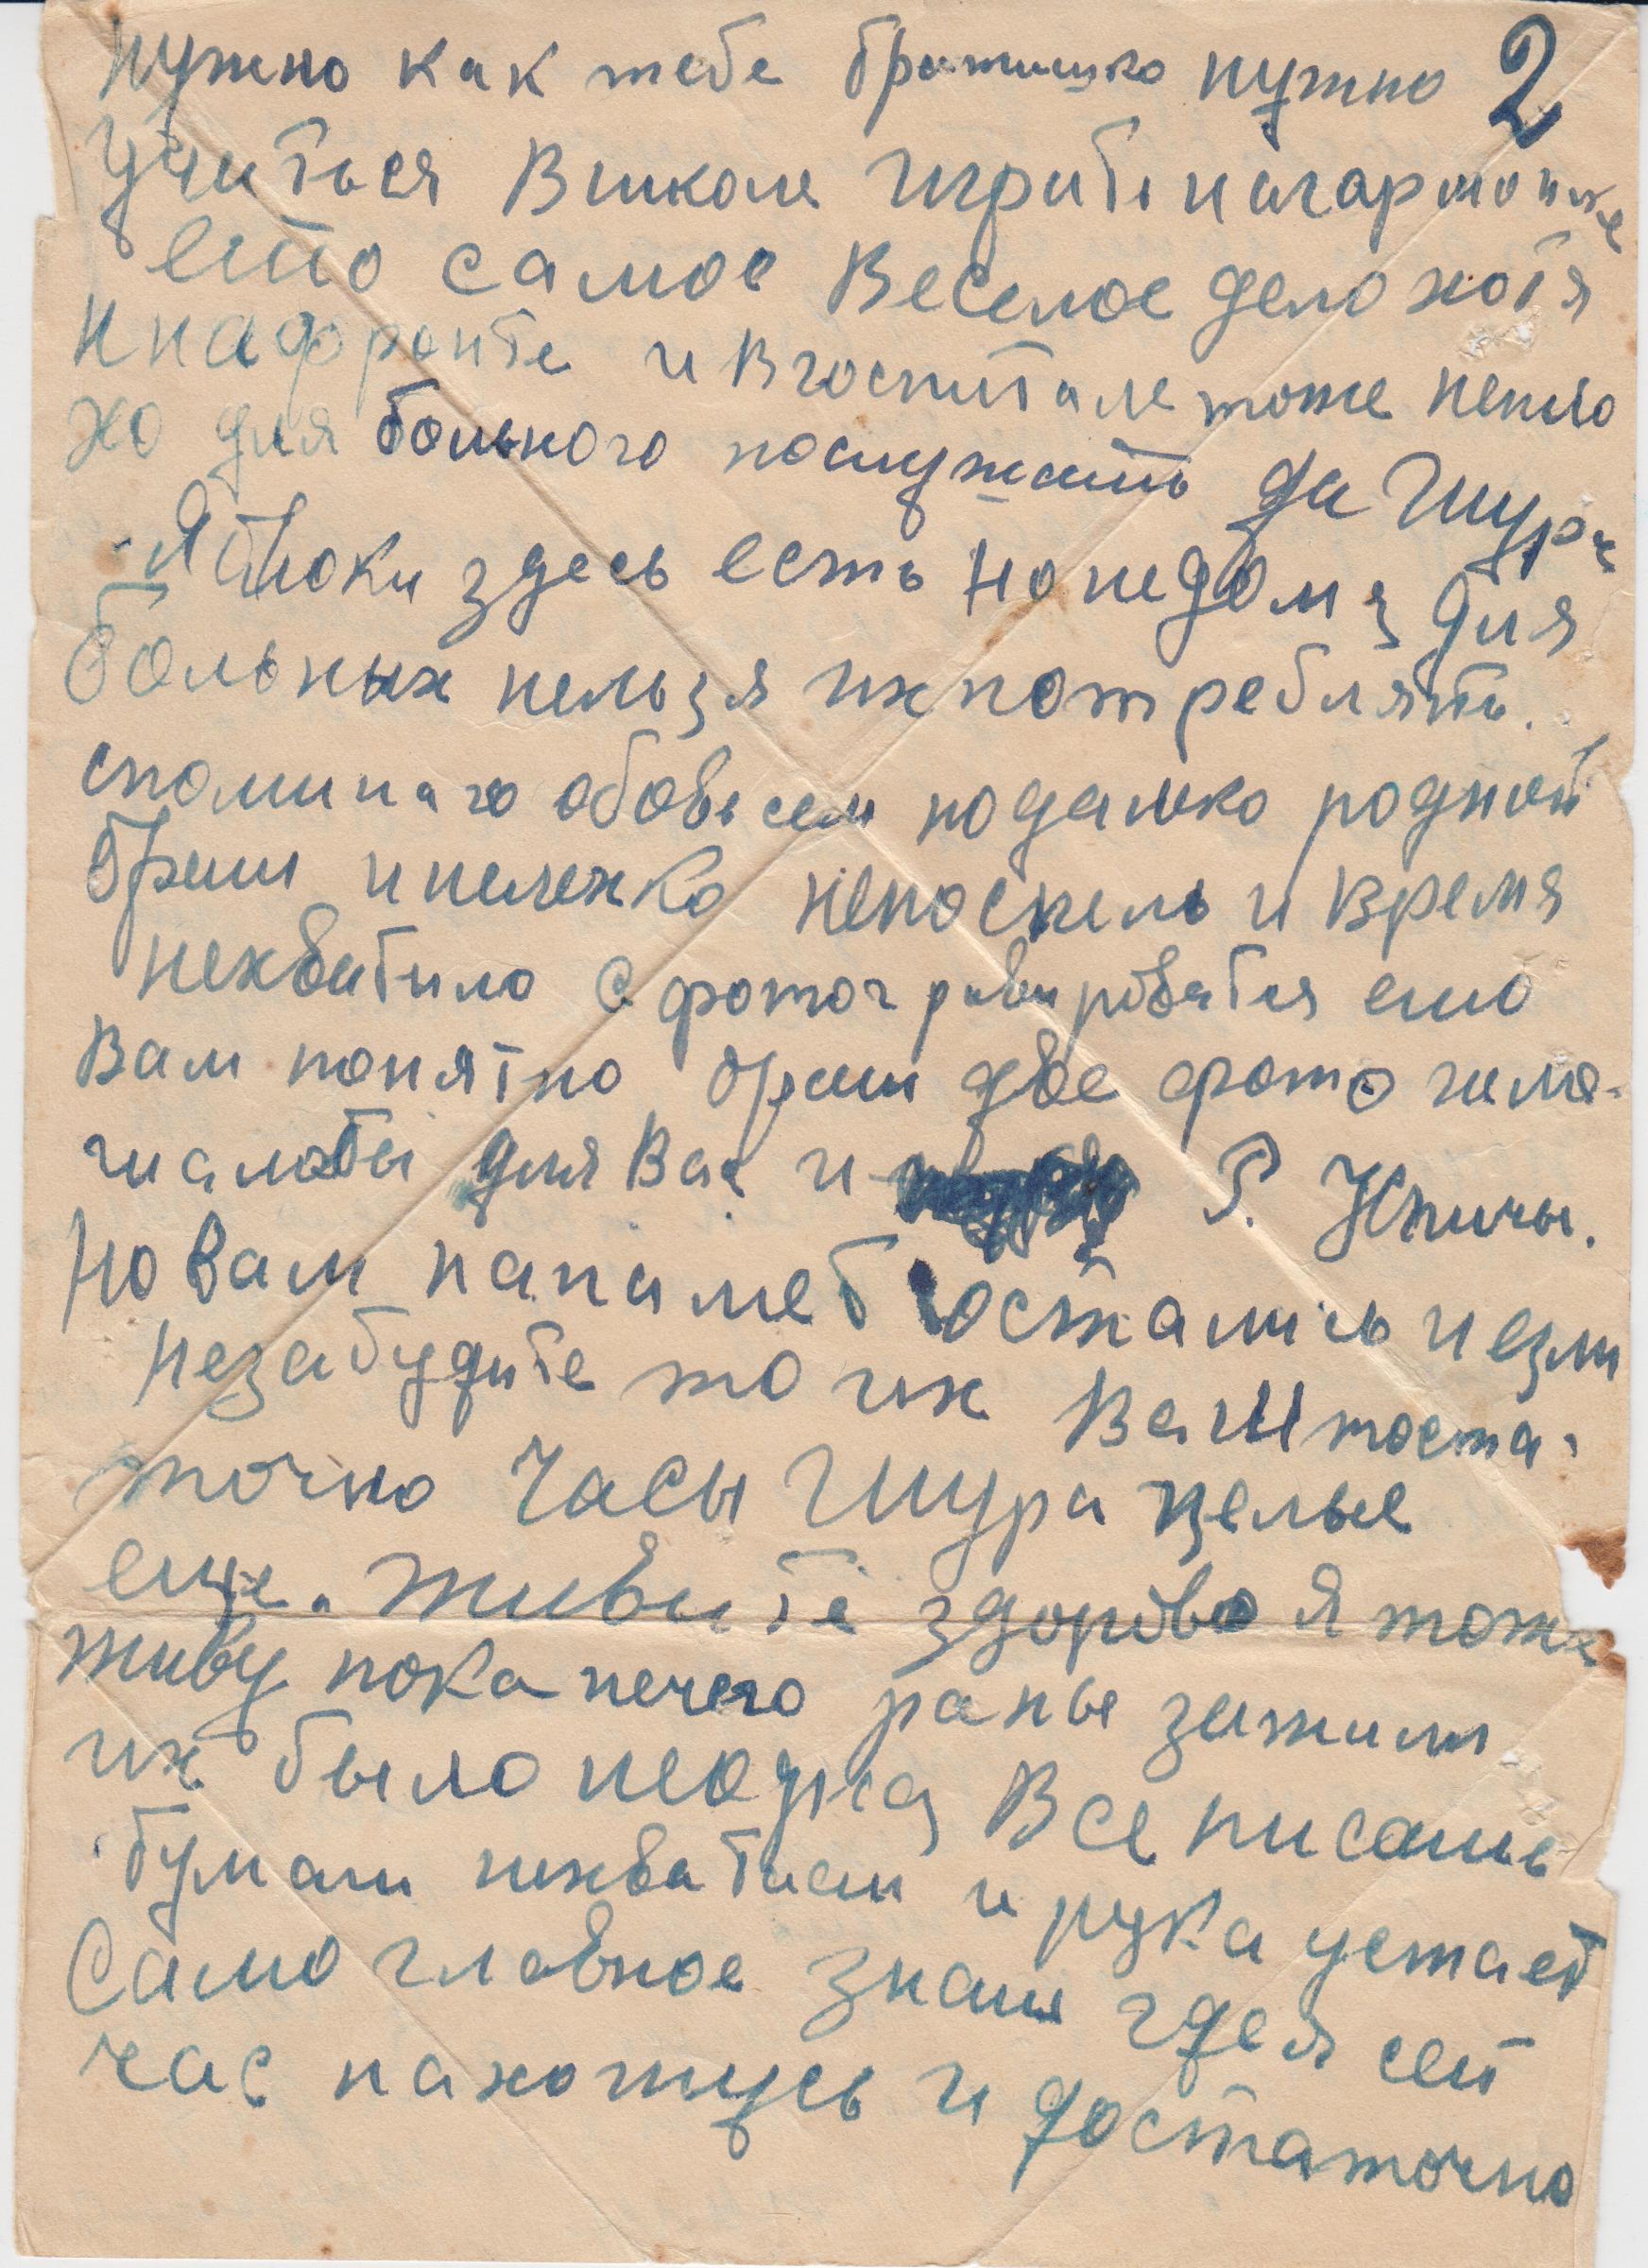 нужно как тебе братишко нужно 2
Учиться в школе играть нагармошке
ето самое веселое дело хотя
инафронте и вгоспитале тоже непло
хо для больного послужить да Шура
Яблоки здесь есть нонедома для
больных нельзя ихпотреблять.
споминаю обовсем подалоко родной
неповспель и время
нехватило сфотогравироватся ето
вам понятно две фото
для Вас и Р.
Но вам напамет остались и езли
незабудите то их Вам доста-
точно Часы Шура целые
еще. живите здорово Я тоже
живу пока нечего раны зажили
их было неодна Все писать
бумаги нехватает и рука устает
Само главное знаш гдея сей
час нахотжусь и достаточно